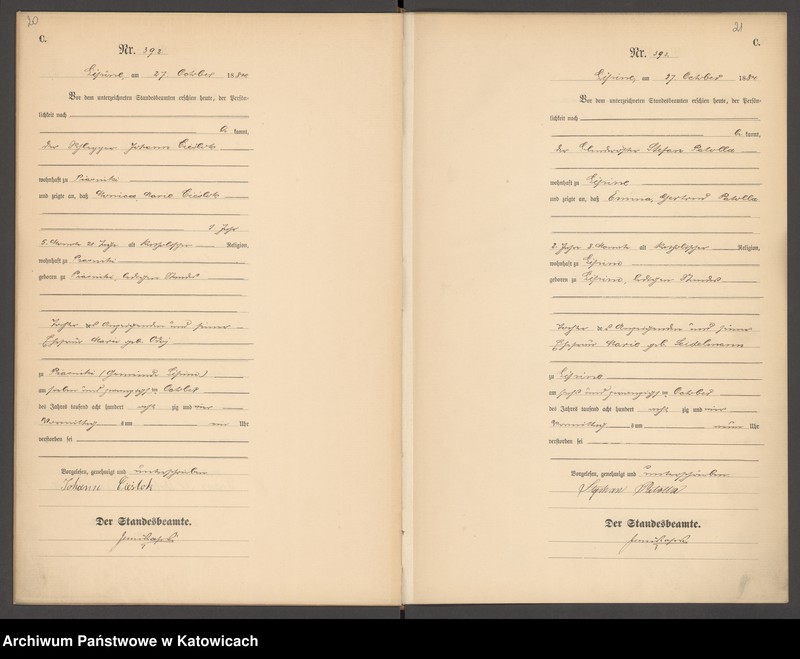 20
C.
Nr. 392
am 27 October 1884
Vor dem unterzeichneten Standesbeamten erschien heute, der Persön-
lichkeit nach
be kannt,
der Johann Cieslok
wohnhaft zu Piasniki
und zeigte an, daß Marie Cieslok
1 Jahr
5 Monate 21 Tage alt katholischer Religion,
wohnhaft zu Piasniki
geboren zu Piasniki, ledigen Standes
Tochter des Anzeigenden und seiner
Ehefrau Marie geb.
zu Piasniki (Gemeinde Lipine)
am sieben und zwanzigsten October
des Jahres tausend acht hundert acht zig und vier
Vormittag s um Uhr
verstorben sei
Vorgelesen, genehmigt und unterschrieben
Johann Cieslok
Der Standesbeamte.
21
C.
Nr. 393
Lipine, am 27 October 1884
Vor dem unterzeichneten Standesbeamten erschien heute, der Persön-
lichkeit nach
be kannt,
der Stefan Patolla
wohnhaft zu Lipine
und zeigte an, daß Emma Gertrud Patolla
2 Jahr 3 Monate alt katholischer Religion,
wohnhaft zu Lipine
geboren zu Lipine, ledigen Standes
Tochter des Anzeigenden und seiner
Ehefrau Marie geb.
zu Lipine
am sechs und zwanzigsten October
des Jahres tausend acht hundert acht zig und vier
Vormittag s um neun Uhr
verstorben sei
Vorgelesen, genehmigt und unterschrieben
Patolla
Der Standesbeamte.
Archiwum Państwowe w Katowicach